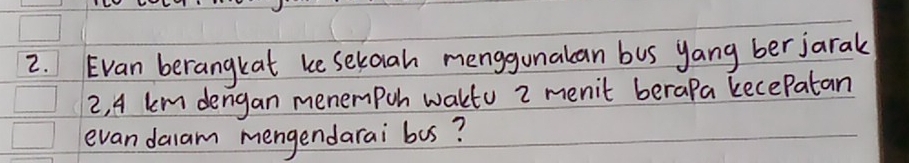 2. Evan berangkat ke sekolah menggunakan bus yang berjarak
2,4 km dengan menempuh waktu 2 menit berapa kecepatan
evan dalam mengendarai bus?